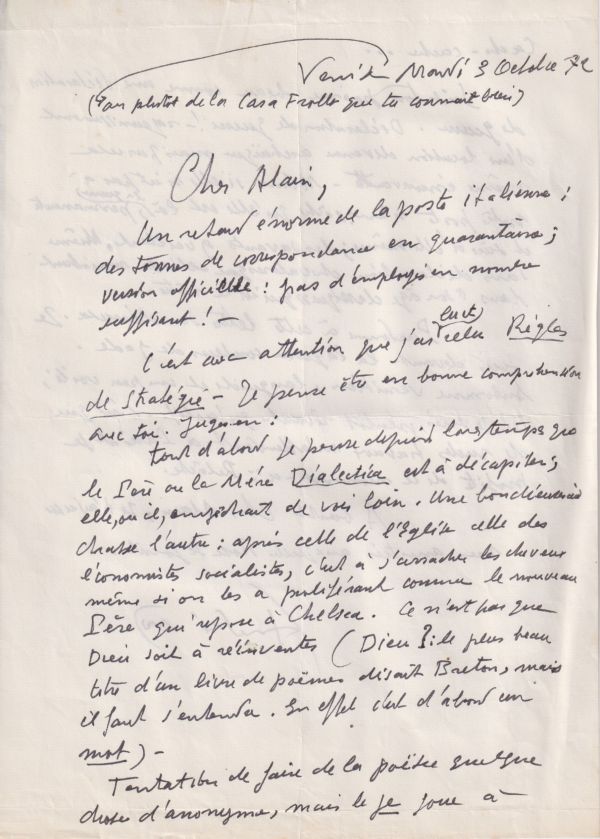 Mardi 3 Octobre 72
(ou plutôt de la Casa Frollo que tu connais bien)
Cher Alain,
Un retard énorme de la poste italienne :
des tonnes de correspondance en quarantaine ;
version officielle : pas d'employés en nombre
suffisant ! —
C'est avec attention que j'ai lu et relu Règles
de Stratégie — Je pense être en bonne compréhension
avec toi. Juges-en :
Tout d'abord je pense depuis longtemps que
le Père ou la Mère Dialectica est à décapiter ;
elle, ou il, empêchant de voir loin. Une bondieuserie
chasse l'autre : après celle de l'Eglise celle des
économistes socialistes, c'est à s'arracher les cheveux
même si on les a proliférant comme le nouveau
Père qui repose à Chelsea. Ce n'est pas que
Dieu soit à réinventer (Dieu ? : le plus beau
titre d'un livre de poëmes disait Breton, mais
il faut s'entendre. En effet c'est d'abord un
mot) —
Tentation de faire de la poësie quelque
chose d'anonyme, mais le je joue à